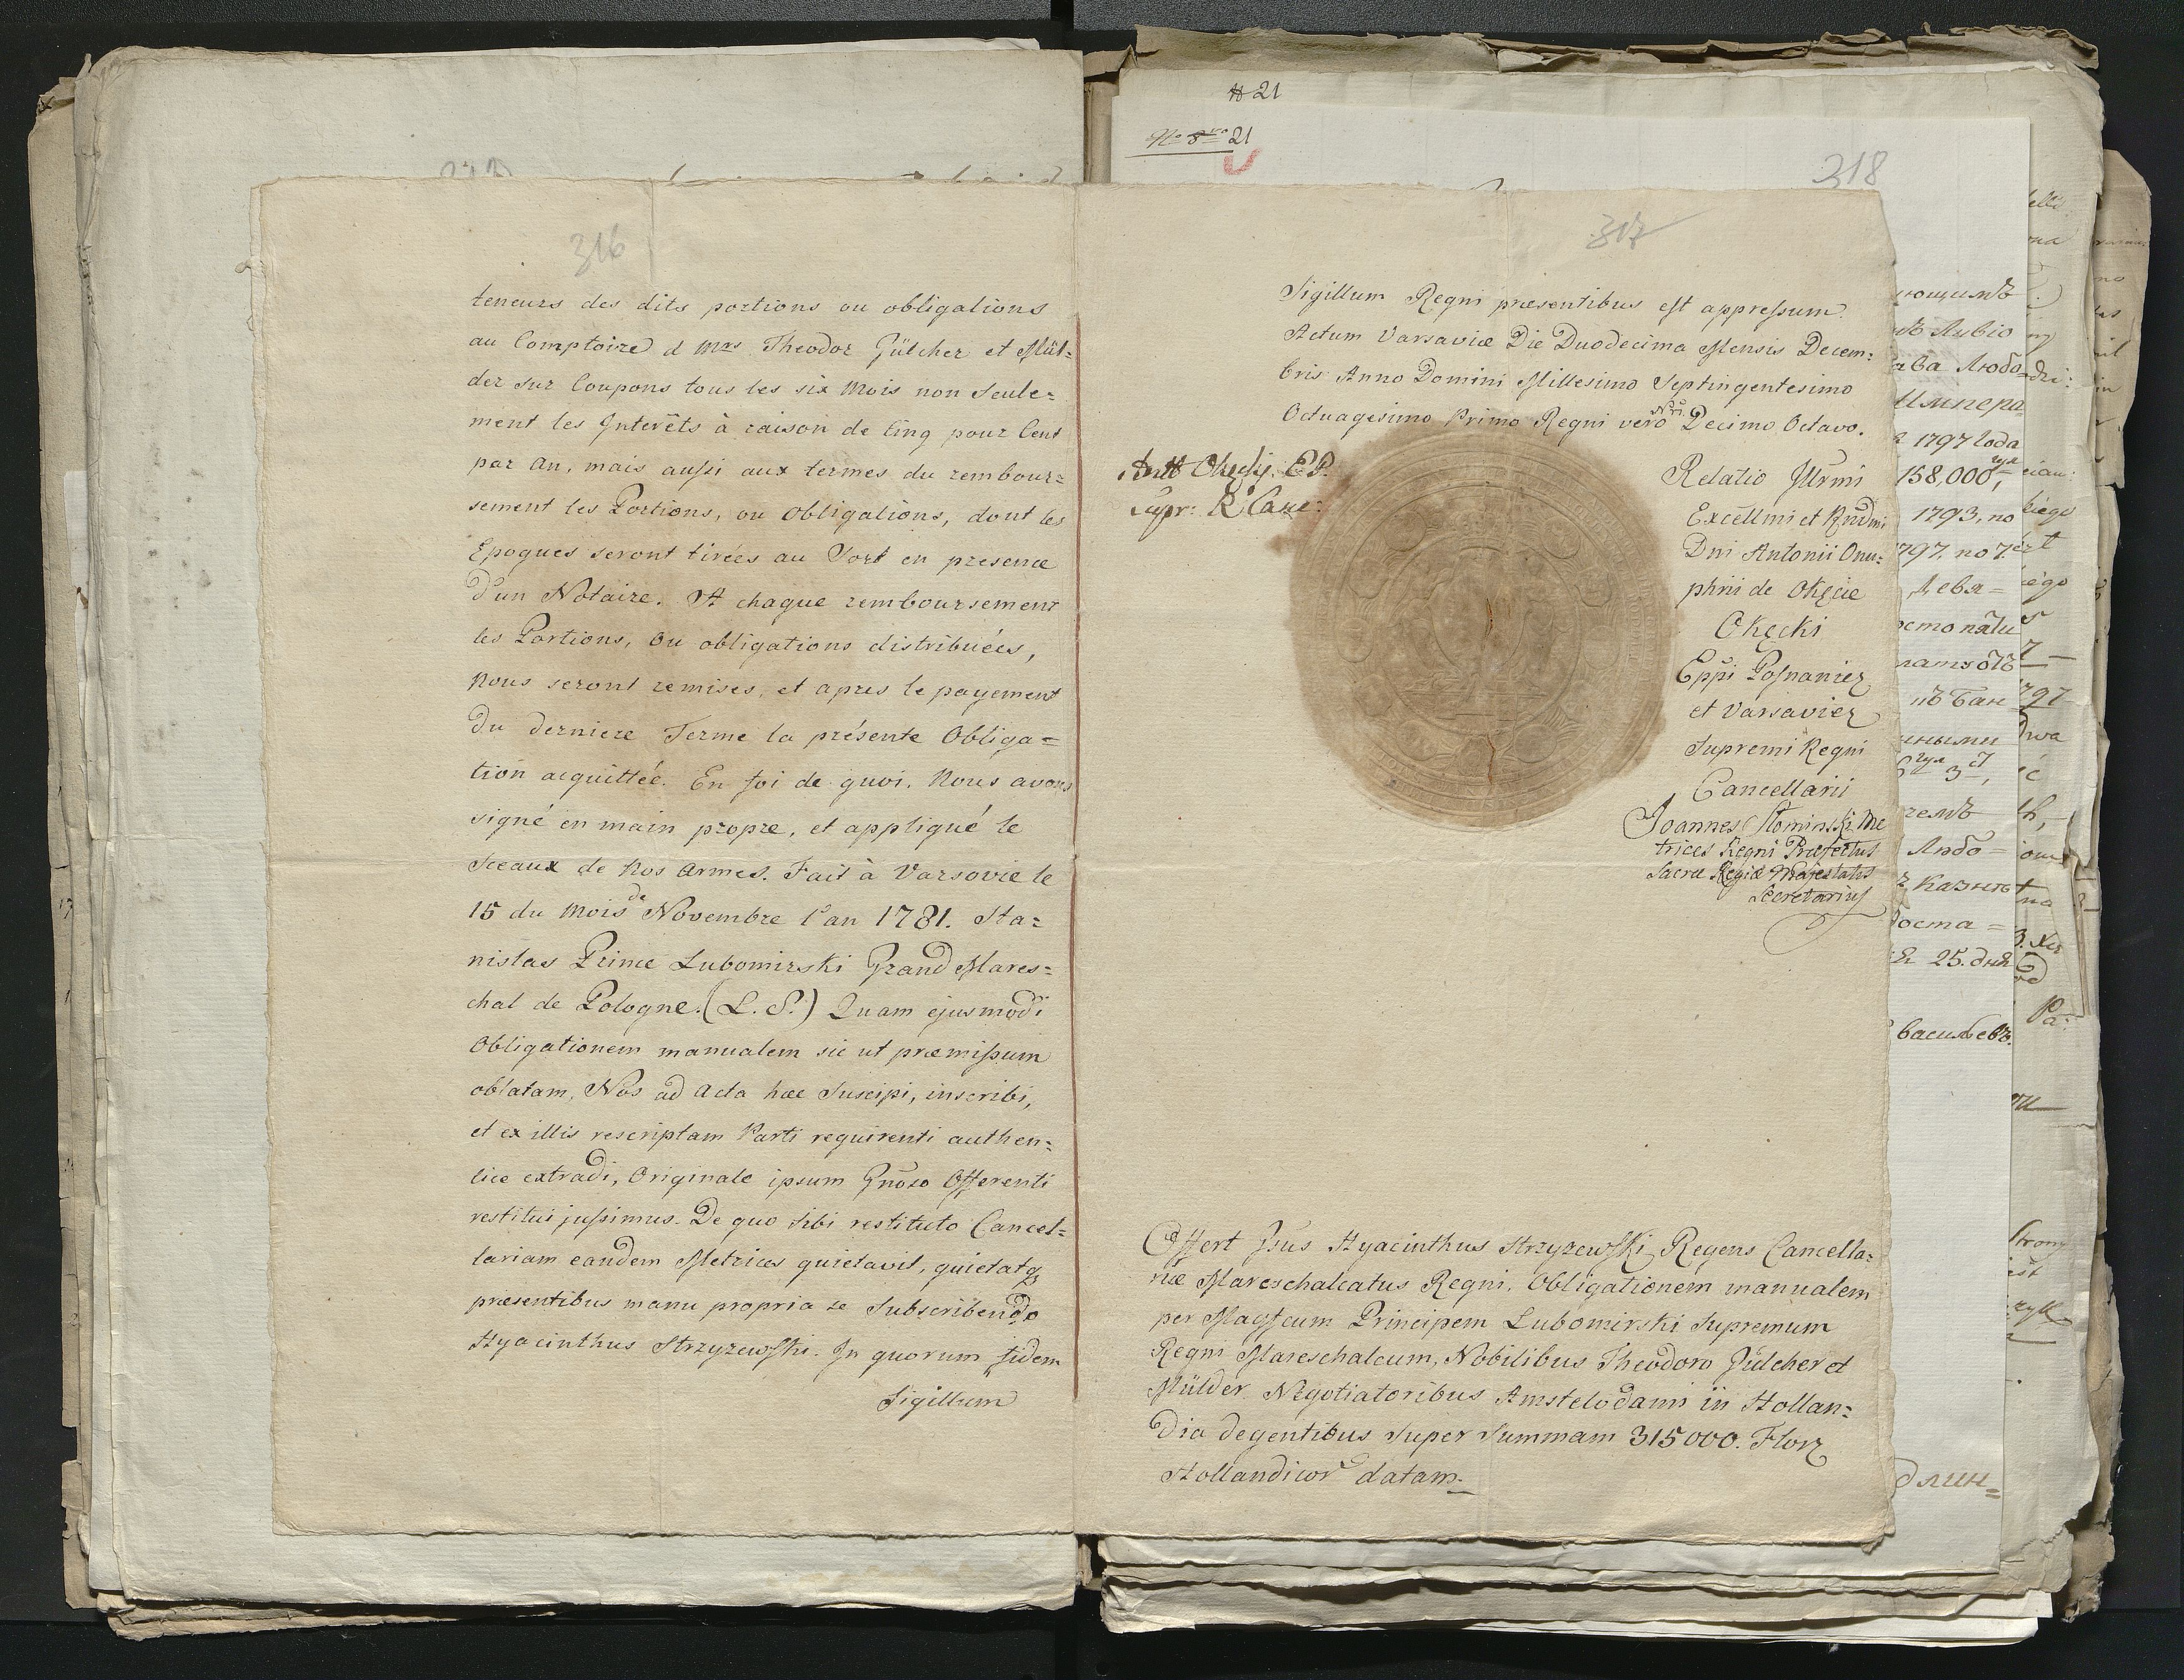 316
teneurs des dits portions ou obligations
au Comptoire d Mrs Theodor Gülcher et Mül=
der sur Coupons tous les six Mois non seule=
ment les Interêts à raison de Cinq pour Cent
par an, mais aussi aux termes du rembour=
sement les Portions, ou obligations, dont les
Epoques seront tirées au Sort en presence
d'un Notaire. A chaque remboursement
les Portions, ou obligations distribuées,
nous seront remises, et apres le payement
du derniere Terme la présente Obliga=
tion acquittée. En foi de quoi, Nous avons
signé en main propre, et appliqué le
Sceaux de Nos Armes. Fait à Varsovie le
15 du Mois de Novembre l'an 1781. Sta=
nislas Prince Lubomirski Grand Mares=
chal de Pologne. (L. S.) Quam ejusmodi
Obligationem manualem sic ut præmissum
oblatam, Nos ad Acta hæc Suscipi, inscribi,
et ex illis rescriptam Parti requirenti authen=
tice extradi, Originale ipsum Gnõso Offerenti
restitui jussimus. De quo sibi restituto Cancel=
lariam eandem Metrices quietavit, quietatq
præsentibus manu propria se Subscribendo
Hyacinthus Strzyzewski. In quorum fidem
Sigillum
# 21
No 8vo 21
318
317
Sigillum Regni præsentibus est appressum.
Actum Varsaviæ Die Duodecima Mensis Decem=
bris Anno Domini Millesimo Septingentesimo
Octuagesimo Primo Regni vero Nri Decimo Octavo.
Antt Okęcki EP.
Supr: R Canc:
Relatio Illrmi
Excellmi et Rndmi
Dni Antonii Onu=
phrii de Okęcie
Okęcki
Eppi Posnanien
et Varsavien
Supremi Regni
Cancellarii
Joannes Słominski Me
trices Regni Præfectus
Sacræ Regiæ Majestatis
Secretarius
Offert Gsus Hyacinthus Strzyzewski Regens Cancella=
riæ Mareschalcatus Regni, Obligationem manualem
per Magfcum Principem Lubomirski Supremum
Regni Mareschalcum, Nobilibus Theodoro Gülcher et
Mülder Negotiatoribus Amstelodami in Hollan=
dia degentibus Super Summam 315000. Flor
Hollandicor datam.
ющимъ
Любо
Импера
1797 года
158,000
1793, по
797. по 7
Девя=
Любо=
Казны
доста=
25. дня
Васильевъ.
длин=